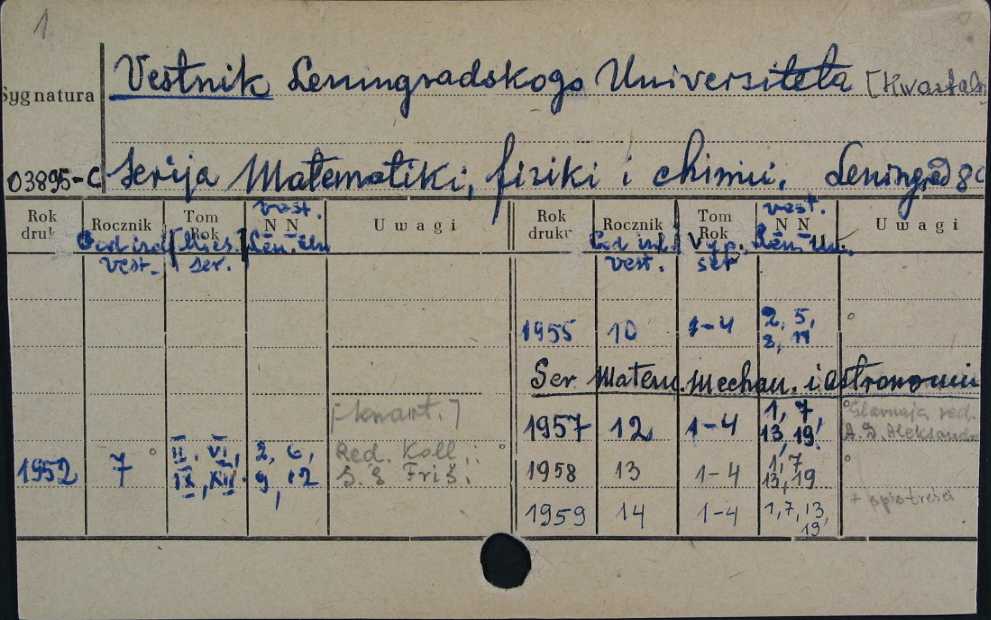 1
Vestnik Leningradskogo Universiteta [Kwartaln
Sygnatura
03895-C Serija Matematiki, fiziki i chimii. Leningrad 8°
Rok druku Rocznik Tom Rok NN Uwagi Rok druku Rocznik Tom Rok NN Uwagi
vest. ser. Len. Un. vest. Vyp. ser vest. Len. Un.
1955 10 1-4 2, 5, 8, 11 °
Ser. Matem. Mechan. i astronomii
[kwart.]
1957 12 1-4 1, 7, 13, 19 ° Glavnaja red. A. D. Aleksandr
1952 7 ° II, VI, IX, XII. 2, 6, 9, 12 Red. Koll.: S. E. Friš; °
1958 13 1-4 1, 7, 13, 19 °
1959 14 1-4 1, 7, 13, 19 + spis treści